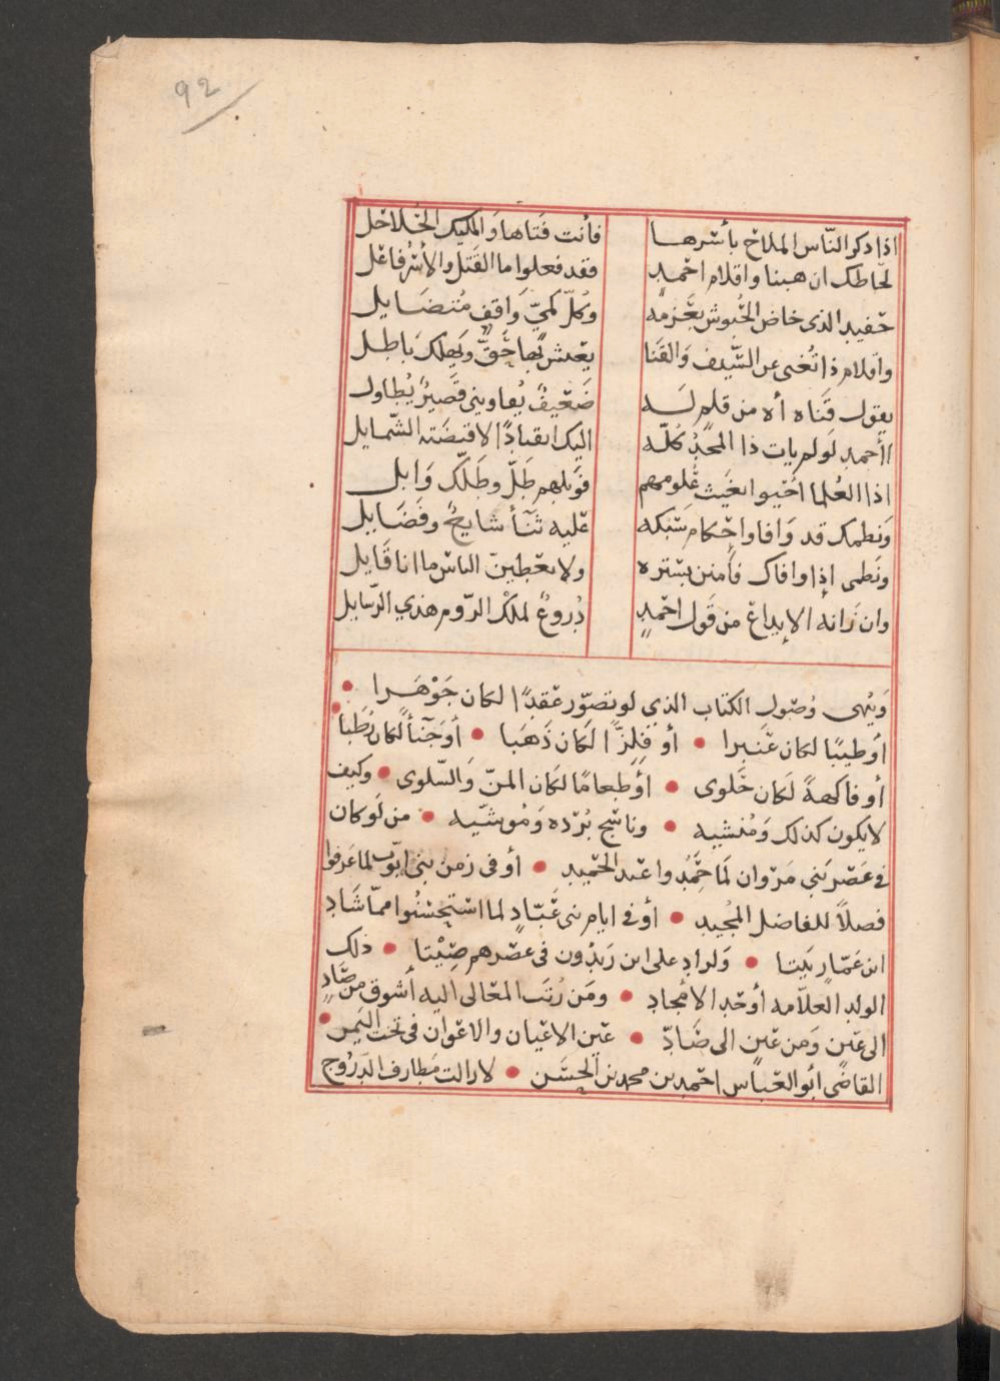 92
اذا ذكر النّاس الملاح بأسرها فأنت فتاها والمليك الحلاحل
لحاظك ان هبنا واقلام احمدٍ فقد فعلوا ما القتل والأسر فاعل
حفيد الذي خاض الجيوش بعزمه وكلّ كميّ واقف متضايل
واقلام ذا تُغني عن السّيف والقنا يعيش بها حقٌّ ويهلك باطل
يقول قناه أه من قلم له ضعيفٌ يُقاويني قصيرٌ يُطاول
أأحمد لو لم يات ذا المجدُ كلّه اليك انقيادًا لاقتضته الشمايل
اذا العُلما أحيوا بغيث علومهم فوبلهم طلّ وطلّك وابل
ونظمك قد وافا واحكام سبكه عليه ثنأ شايعٌ وفضايل
ونظمى إذا وافاك فأمنن بستره ولا تعطين الناس ما انا قايل
وان زانه الإبداع من قول احمدٍ دروعٌ لملك الروم هذي الرسايل
ويُنهى وُصول الكتاب الذي لو تصوّر عقدًا لكان جَوْهَرا
أو طيبًا لكان عنبرا أو فلزًّا لكان ذهبا أو جنًأ لكان رُطبا
أو فاكهةً لكان حَلوى أو طعامًا لكان المنّ والسّلوى وكيف
لا يكون كذلك ومُنشيه وناسج بُرده ومُوشّيه من لو كان
في عصر بني مروان لما حمّدوا عبد الحميد أو فى زمن بنى ايّوب لما عرفوا
فضلًا للفاضل المجيد أو فى ايام بنى عبّادٍ لما استحسنُوا ممّا شاد
ابن عمّار بيتا ولرادٍ على ابن زيدُون فى عصرهم صِيْتا ذلك
الولد العلّامه أوحد الامجاد ومَن رُتَب المعَالى اليه أشوق من صَادٍ
الى عَينٍ ومن عَين الى ضَادّ عين الاعيان والاعوان فى تحت اليمن
القاضي ابو العبّاس احمد بن محمد بن الحسَن لا زالت مطارف الدروج